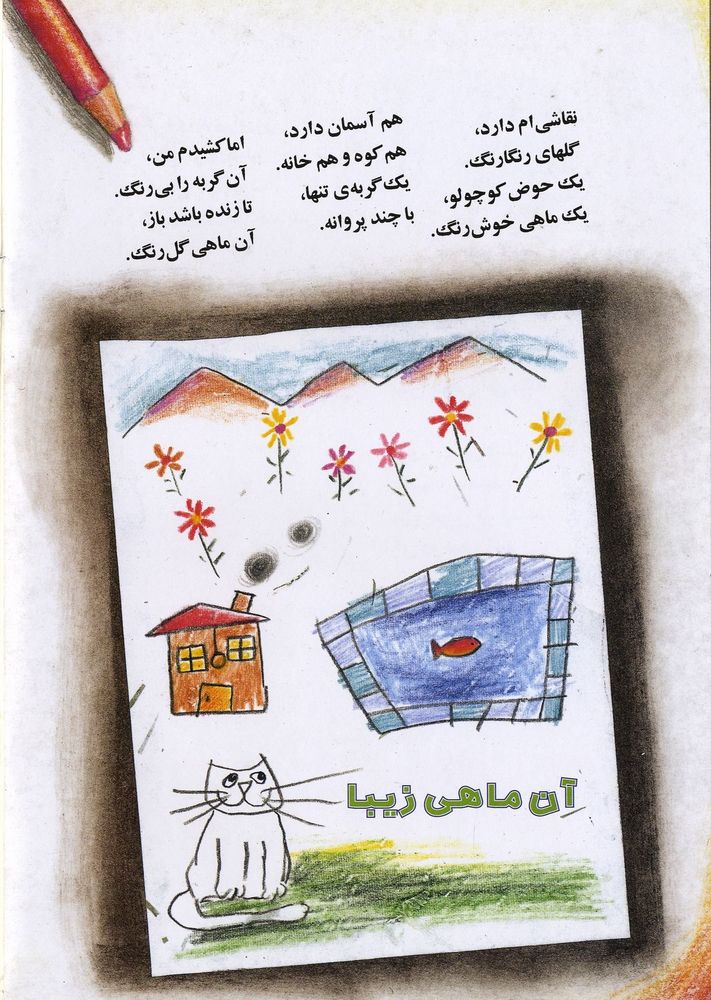 نقاشی‌ام دارد،
گلهای رنگارنگ.
یک حوض کوچولو،
یک ماهی خوش‌رنگ.
هم آسمان دارد،
هم کوه و هم خانه.
یک گربه‌ی تنها،
با چند پروانه.
اما کشیدم من،
آن گربه را بی‌رنگ.
تا زنده باشد باز،
آن ماهی گل‌رنگ.
آن ماهی زیبا